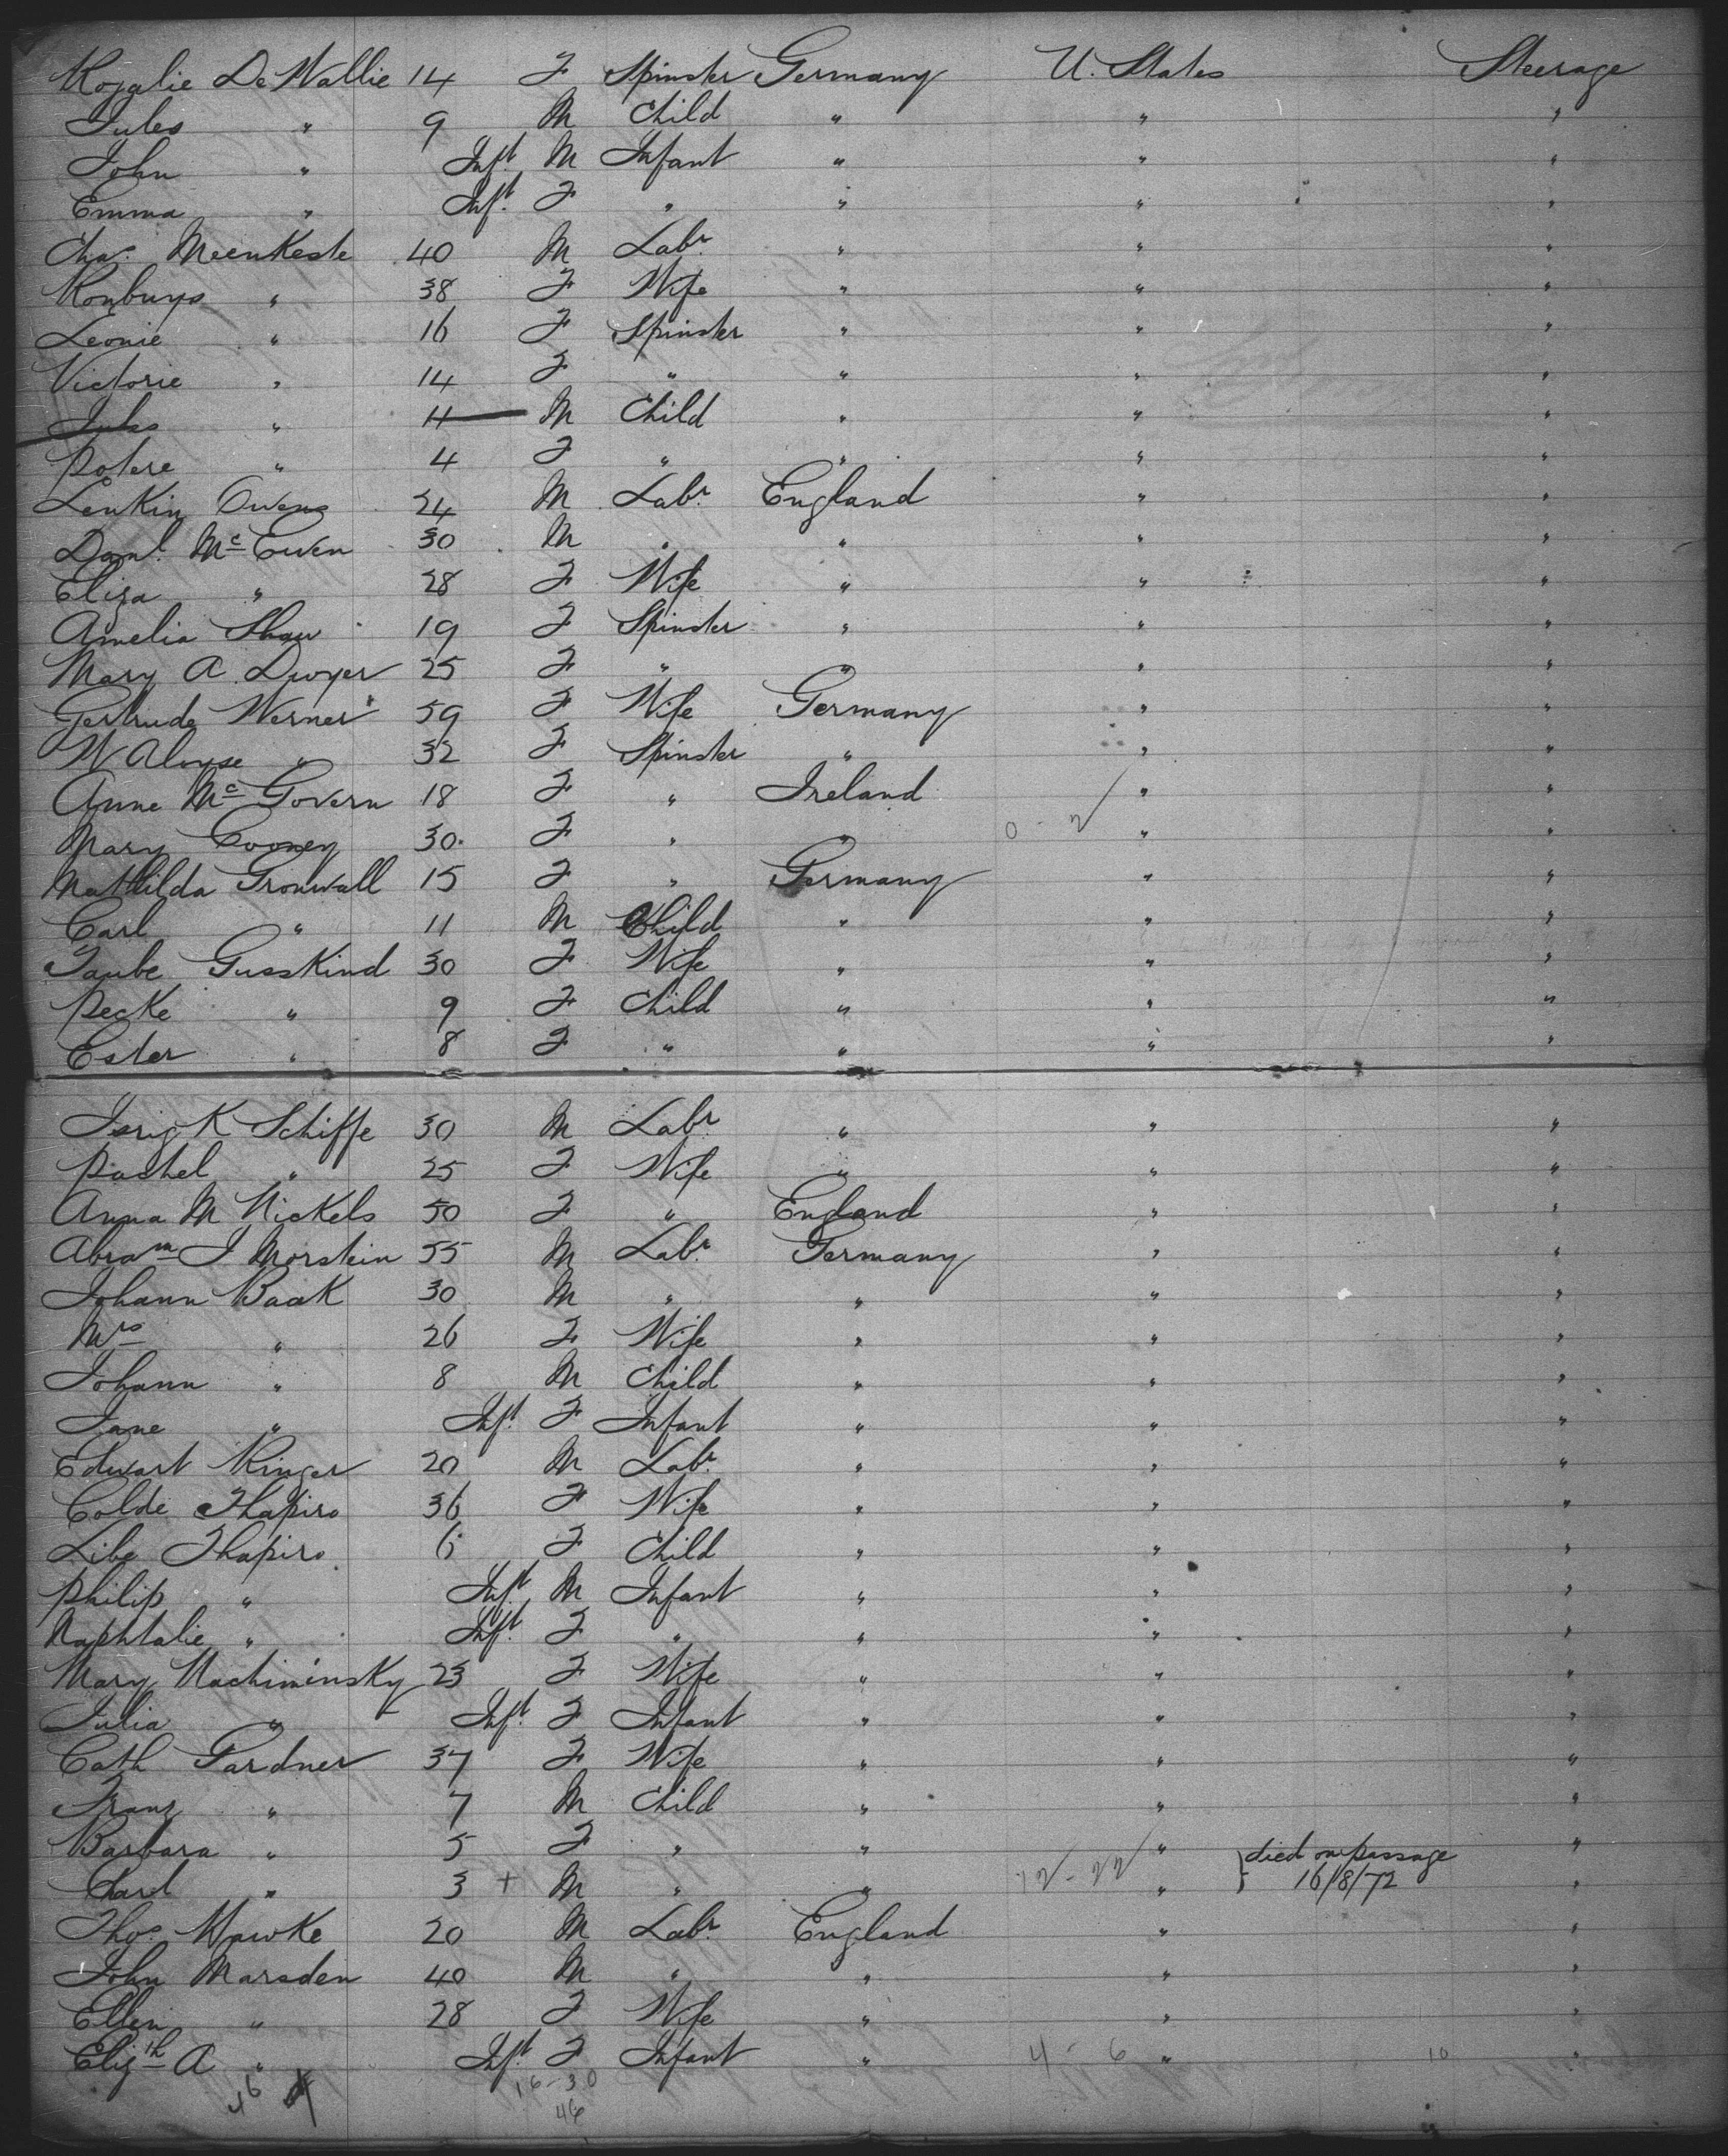 Rozalie De Wallie 14 F Spinster Germany U. States Steerage
Jules " 9 M Child " " "
John " Inft. M Infant " " "
Emma " Inft. F " " " "
Chas. Meenkeste 40 M Labr. " " "
Konburgs " 38 F Wife " " "
Leonie " 16 F Spinster " " "
Victorie " 14 F " " " "
Jules " 11 M Child " " "
Potere " 4 F " " " "
Lenkin Owens 24 M Labr. England " "
Danl. Mc Ewen 30 M " " " "
Eliza " 28 F Wife " " "
Amelia Shaw 19 F Spinster " " "
Mary A Dwyer 25 F " " " "
Gertrude Werner 59 F Wife Germany " "
W Aloyse " 32 F Spinster " " "
Anne Mc Govern 18 F " Ireland " "
Mary Cooney 30 F " " 0 - 2 " "
Mathilda Gronwall 15 F " Germany " "
Carl " 11 M Child " " "
Taube Gusskind 30 F Wife " " "
Pecke " 9 F Child " " "
Ester " 8 F " " " "
Isrig K Schiffe 30 M Labr " " "
Rachel " 25 F Wife " " "
Anna M Nickels 50 F " England " "
Abram J Morstein 55 M Labr. Germany " "
Johann Baak 30 M " " " "
Mrs " 26 F Wife " " "
Johann " 8 M Child " " "
Jane " Inft. F Infant " " "
Edwart Ringer 20 M Labr. " " "
Colde Thapiro 36 F Wife " " "
Libe Thapiro 6 F Child " " "
Philip " Inft. M Infant " " "
Naphtalie " Inft. F " " " "
Mary Machiminsky 23 F Wife " " "
Julia " Inft. F Infant " " "
Cath Gardner 37 F Wife " " "
Franz " 7 M Child " " "
Barbara " 5 F " " " died on passage "
Charl " 3 + M " " 12 - 22 " 16/8/72 "
Thos. Hawke 20 M Labr. England " "
John Marsden 40 M " " " "
Ellen " 28 F Wife " " "
Elizth A " Inft. F Infant " 4 - 6 " 10 "
46 16 - 30
46